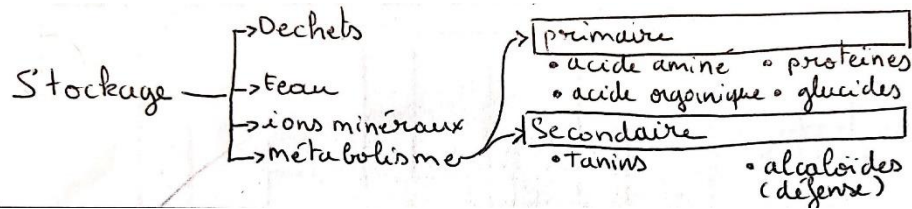 Stockage
→Dechets
→Eau
→ions minéraux
→métabolisme
→primaire
• acide aminé • protéines
• acide organique • glucides
→Secondaire
• Tanins • alcaloïdes
(défense)